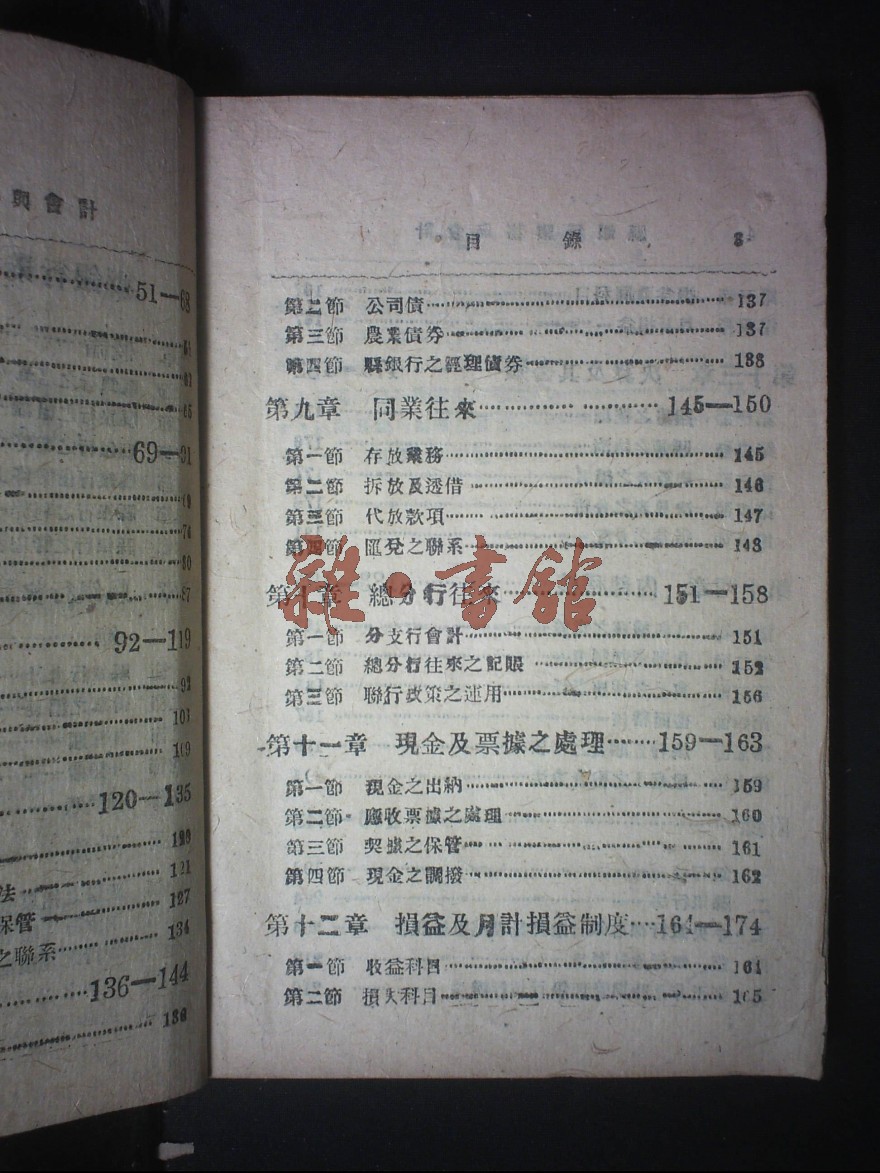 與會計
51—68
61
65
69—91
74
80
87
92—119
92
109
120—135
120
法 121
保管 127
之聯系 134
136—144
136
目錄 3
第二節 公司債 137
第三節 農業債券 137
第四節 縣銀行之經理債券 138
第九章 同業往來 145—150
第一節 存放業務 145
第二節 拆放及透借 146
第三節 代放款項 147
第四節 匯兌之聯系 148
雜·書館
第十章 總分行往來 151—158
第一節 分支行會計 151
第二節 總分行往來之記賬 152
第三節 聯行政策之運用 156
第十一章 現金及票據之處理 159—163
第一節 現金之出納 159
第二節 應收票據之處理 160
第三節 契據之保管 161
第四節 現金之調撥 162
第十二章 損益及月計損益制度 164—174
第一節 收益科目 164
第二節 損失科目 165